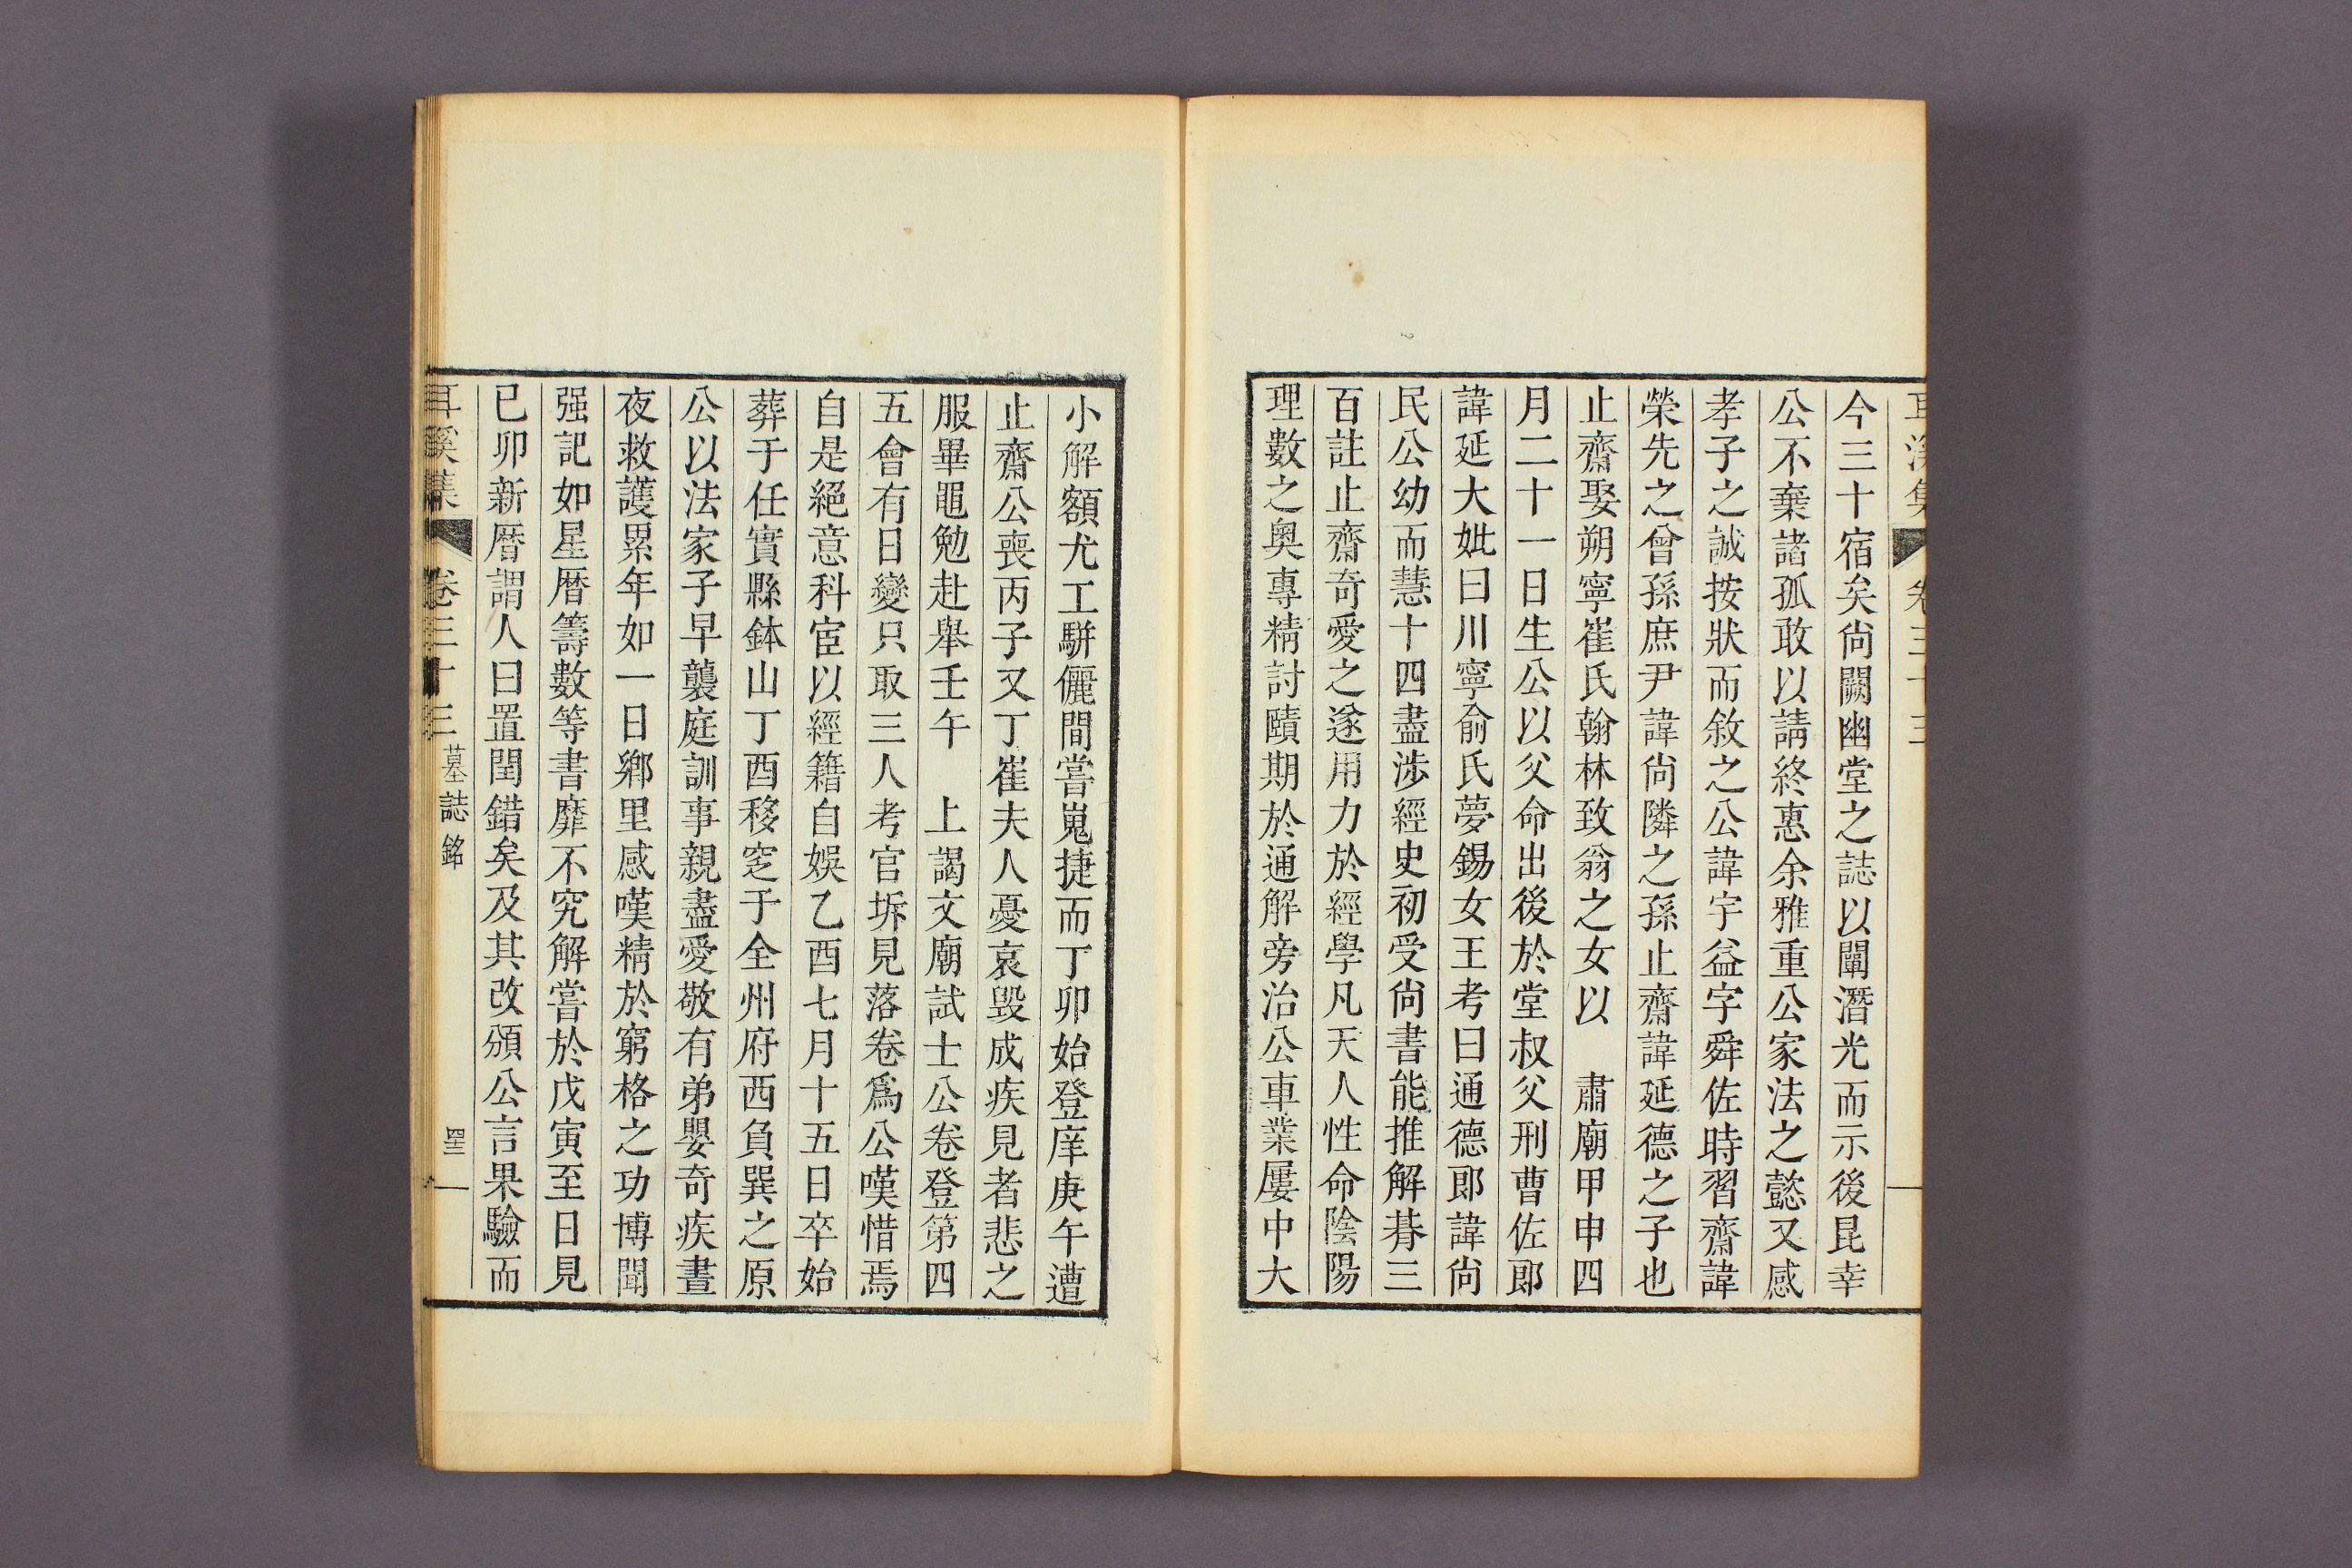 今三十宿矣尙闕幽堂之誌以闡潛光而示後昆幸
公不棄諸孤敢以請終惠余雅重公家法之懿又感
孝子之誠按狀而敘之公諱宇益字舜佐時習齋諱
榮先之曾孫庶尹諱尙隣之孫止齋諱延德之子也
止齋娶朔寧崔氏翰林致翁之女以　肅廟甲申四
月二十一日生公以父命出後於堂叔父刑曹佐郞
諱延大妣曰川寧俞氏夢錫女王考曰通德郞諱尙
民公幼而慧十四盡涉經史初受尙書能推解朞三
百註止齋奇愛之遂用力於經學凡天人性命陰陽
理數之奧專精討賾期於通解旁治公車業屢中大
小解額尤工騈儷間嘗嵬捷而丁卯始登庠庚午遭
止齋公喪丙子又丁崔夫人憂哀毀成疾見者悲之
服畢黽勉赴舉壬午　上謁文廟試士公卷登第四
五會有日變只取三人考官坼見落卷爲公嘆惜焉
自是絕意科宦以經籍自娛乙酉七月十五日卒始
葬于任實縣鉢山丁酉移窆于全州府西負巽之原
公以法家子早襲庭訓事親盡愛敬有弟嬰奇疾晝
夜救護累年如一日鄕里感嘆精於窮格之功博聞
强記如星曆籌數等書靡不究解嘗於戊寅至日見
已卯新曆謂人曰置閏錯矣及其改頒公言果驗而
耳溪集　卷三十三　墓誌銘